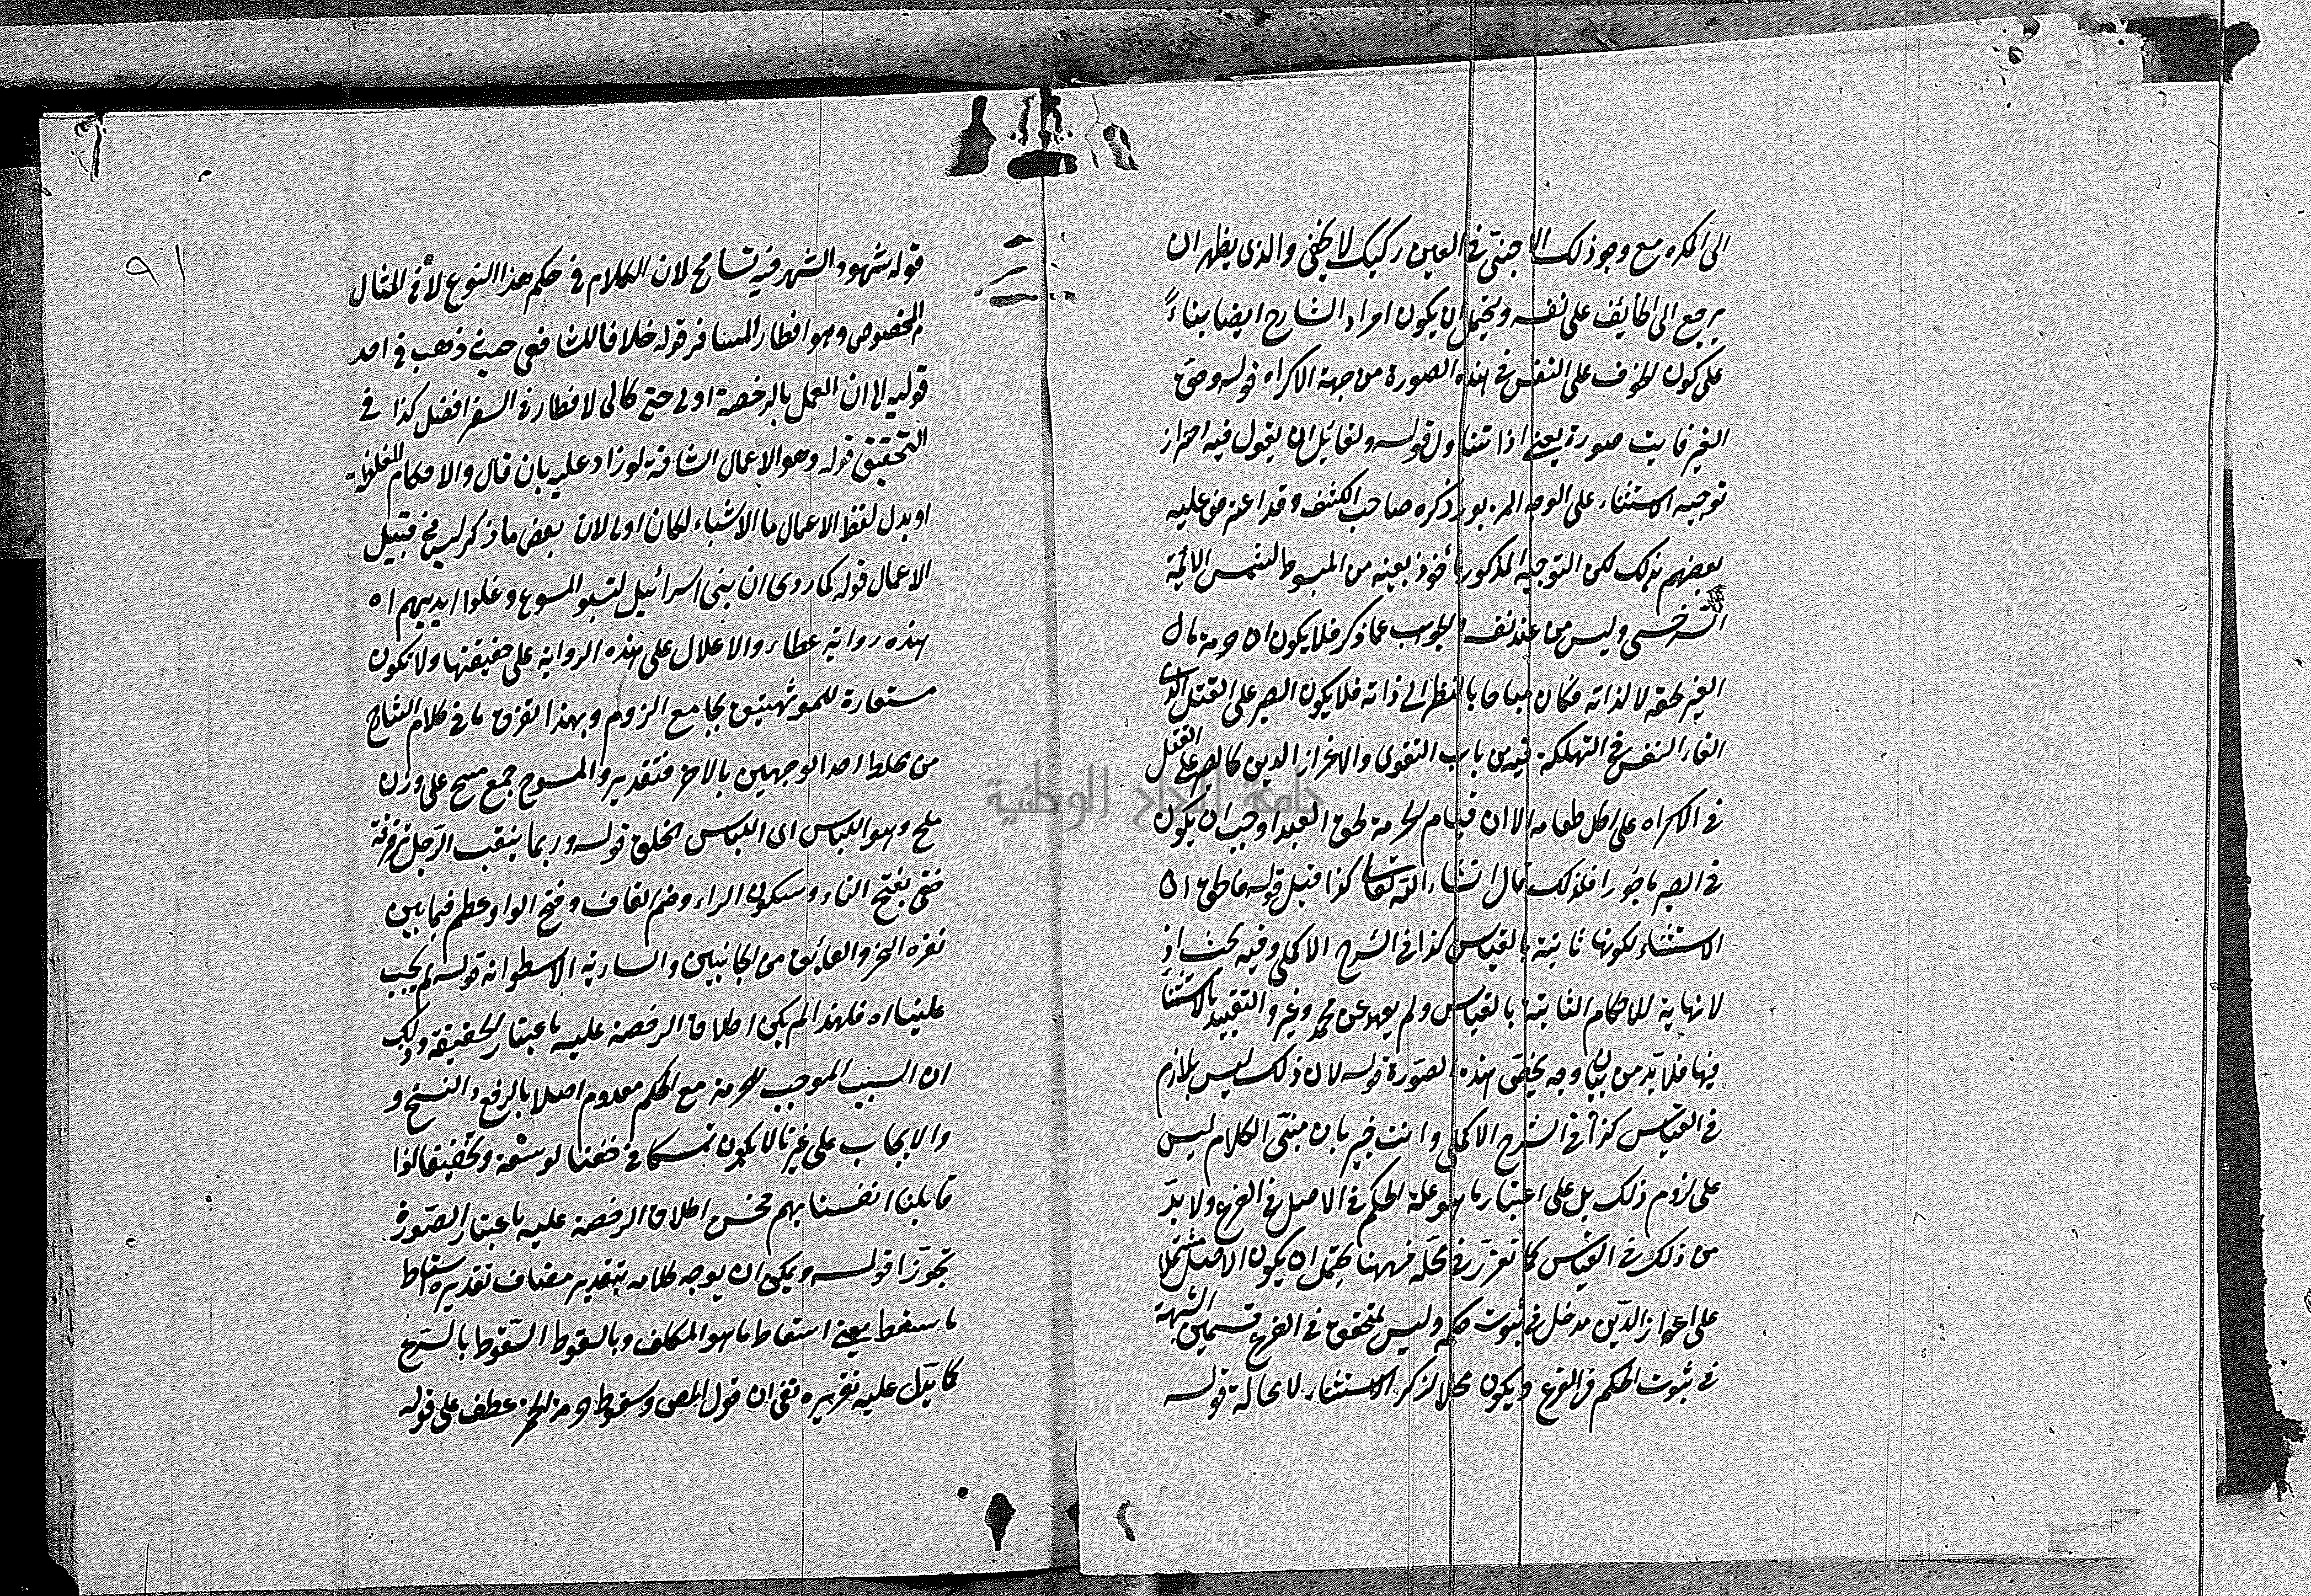 الى المكره مع وجو ذلك الاجنبى فى العين ركيك لا يخفى والذى يظهر ان
يرجع الى الطايف على نفسه ويحتمل ان يكون امراد الشارح ايضا بناءً
على كون الخوف على النفس فى هذه الصورة من جهة الاكراه قوله وحق
الغير فايت صورة يعنى اذا تناول قوله ولقائل ان يقول فيه احتراز
توجيه الاستثناء على الوجه المزبور ذكره صاحب الكشف وقد اعترض عليه
بعضهم بذلك لكن التوجيه المذكور مأخوذ بعينه من المبسوط لشمس الائمة
السرخسى وليس من عند نفسه الجواب عما ذكر فلا يكون ان حرمة مال
الغير لحقه لا لذاته فكان مباحا بالنظر الى ذاته فلا يكون الصبر على القتل الذى
القاء النفس فى التهلكة فيه من باب التقوى والاعزاز الدين كالصبر على القتل
فى الاكراه على اكل طعامه الا ان قيام الحرمة لحق العبد اوجب ان يكون
فى الصبر ماجورا فلذلك قال انشاء الله تعالى كذا قيل قوله ماطوع ان
الاستثناء لكونها ثابتة بالقياس كذا فى الشرح الاكملى وفيه بحث اذ
لا نهاية للاحكام الثابتة بالقياس ولم يعهد عن محمد وغيره التقييد بالاستثناء
فيها فلا بد من بيان وجه يخص هذه الصورة قوله لان ذلك ليس بلازم
فى القياس كذا فى الشرح الاكملى وانت خبير بان مبنى الكلام ليس
على لزوم ذلك بل على اعتبار ما هو علة الحكم فى الاصل فى الفرع ولا بد
من ذلك فى القياس كما تقرر فى محله فههنا يحتمل ان يكون الاصل مشتملا
على اعزاز الدين مدخل فى ثبوت حكمه وليس بمتحقق فى الفرع الشبهة
فى ثبوت الحكم فى الفرع ويكون محلا لذكر الاستثناء لا محالة قوله
٩١
قوله شهود الشهر فيه تسامح لان الكلام فى حكم هذا النوع لا فى المثال
المخصوص وهو افطار المسافر قوله خلافا للشافعى حيث ذهب فى احد
قوليه الى ان العمل بالرخصة اولى حتى كان الافطار فى السفر افضل كذا فى
التحقيق قوله وهو الاعمال الشاقة لو زاد عليه بان قال والاحكام المغلظة
او بدل لفظ الاعمال ما الاشياء لكان اولى لان بعض ما ذكر ليس من قبيل
الاعمال قوله كما روى ان بنى اسرائيل لبسوا المسوح وغلوا ايديهم اه
هذه رواية عطاء والاغلال على هذه الرواية على حقيقتها ولا تكون
مستعارة للموثيق بجامع اللزوم وبهذا تعرف ما فى كلام الشارح
من خلط احد الوجهين بالاخر فتقديره والمسوح جمع مسح على وزن
ملح وهو اللباس اى اللباس الخلق قوله وربما يثقب الرجل ترقوته
فقى بفتح التاء وسكون الراء وضم القاف وفتح الواو عظم فيما بين
نقرة النحر والعاتق من الجانبين والسارية الاسطوانة قوله لم يجب
علينا اه فلهذا لم يكن اطلاق الرخصة عليه باعتبار الحقيقة وذلك
ان السبب الموجب للحرمة مع الحكم معدوم اصلا بالرفع والنسخ و
والايجاب على غيرنا لا يكون تمسكا فى حقنا توسعة وتخفيفا لذا
قابلنا انفسنا بهم فحسن اطلاق الرخصة عليه باعتبار الصورة
تجوزا قوله ويمكن ان يوجه كلامه بتقدير مضاف تقديره اسقاط
ما سقط يعنى اسقاط ما هو المكلف وبالسقوط السقوط بالشرع
كما يدل عليه تقريره بقى ان قول المص وسقوط حرمة الخمر عطف على قوله
جامعة النجاح الوطنية